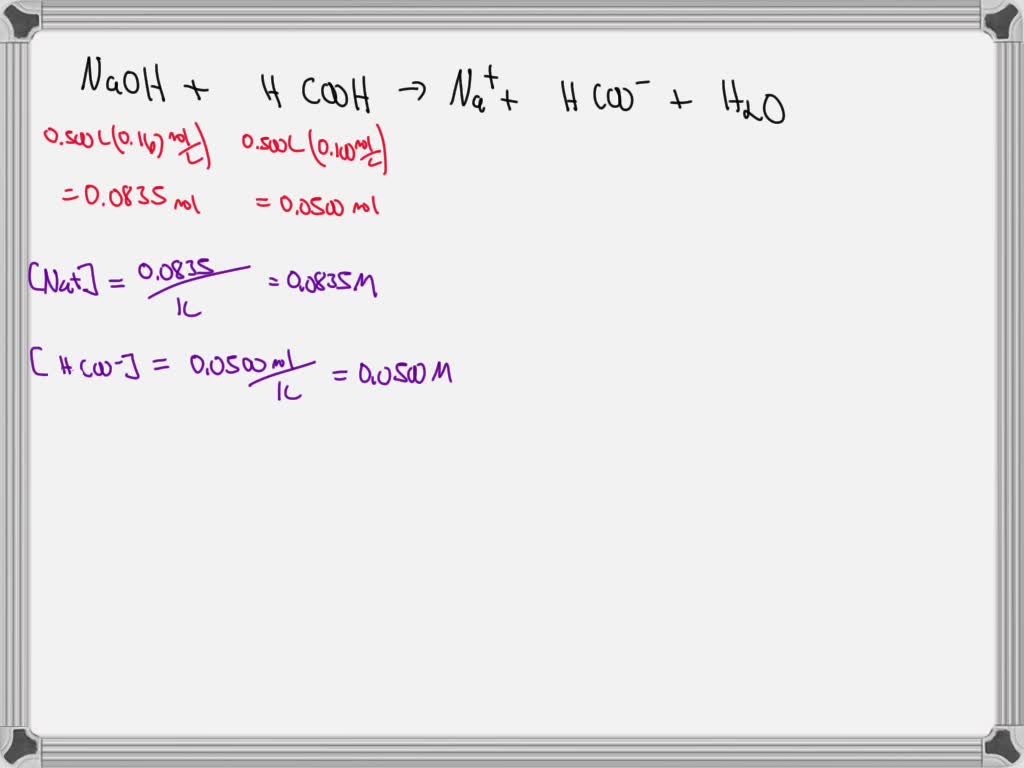 NaOH + HCOOH → Na⁺ + HCOO⁻ + H₂O
0.500L(0.167 mol/L) 0.500L(0.100 mol/L)
= 0.0835 mol = 0.0500 mol
[Na+] = 0.0835/1L = 0.0835M
[HCOO⁻] = 0.0500 mol/1L = 0.0500M